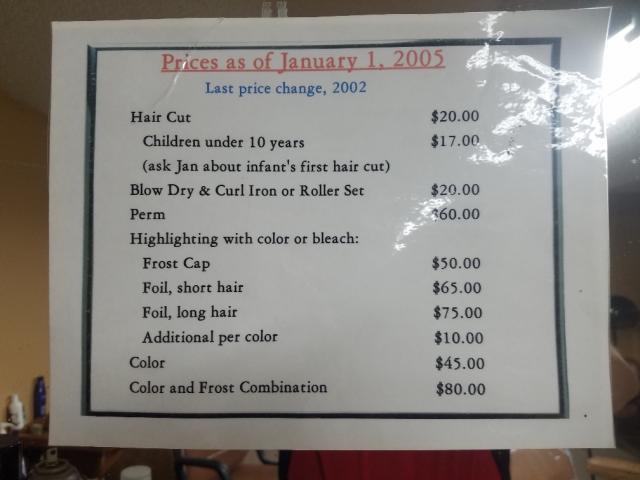 Prices as of January 1, 2005
Last price change, 2002
Hair Cut $20.00
Children under 10 years $17.00
(ask Jan about infant's first hair cut)
Blow Dry & Curl Iron or Roller Set $20.00
Perm $60.00
Highlighting with color or bleach:
Frost Cap $50.00
Foil, short hair $65.00
Foil, long hair $75.00
Additional per color $10.00
Color $45.00
Color and Frost Combination $80.00